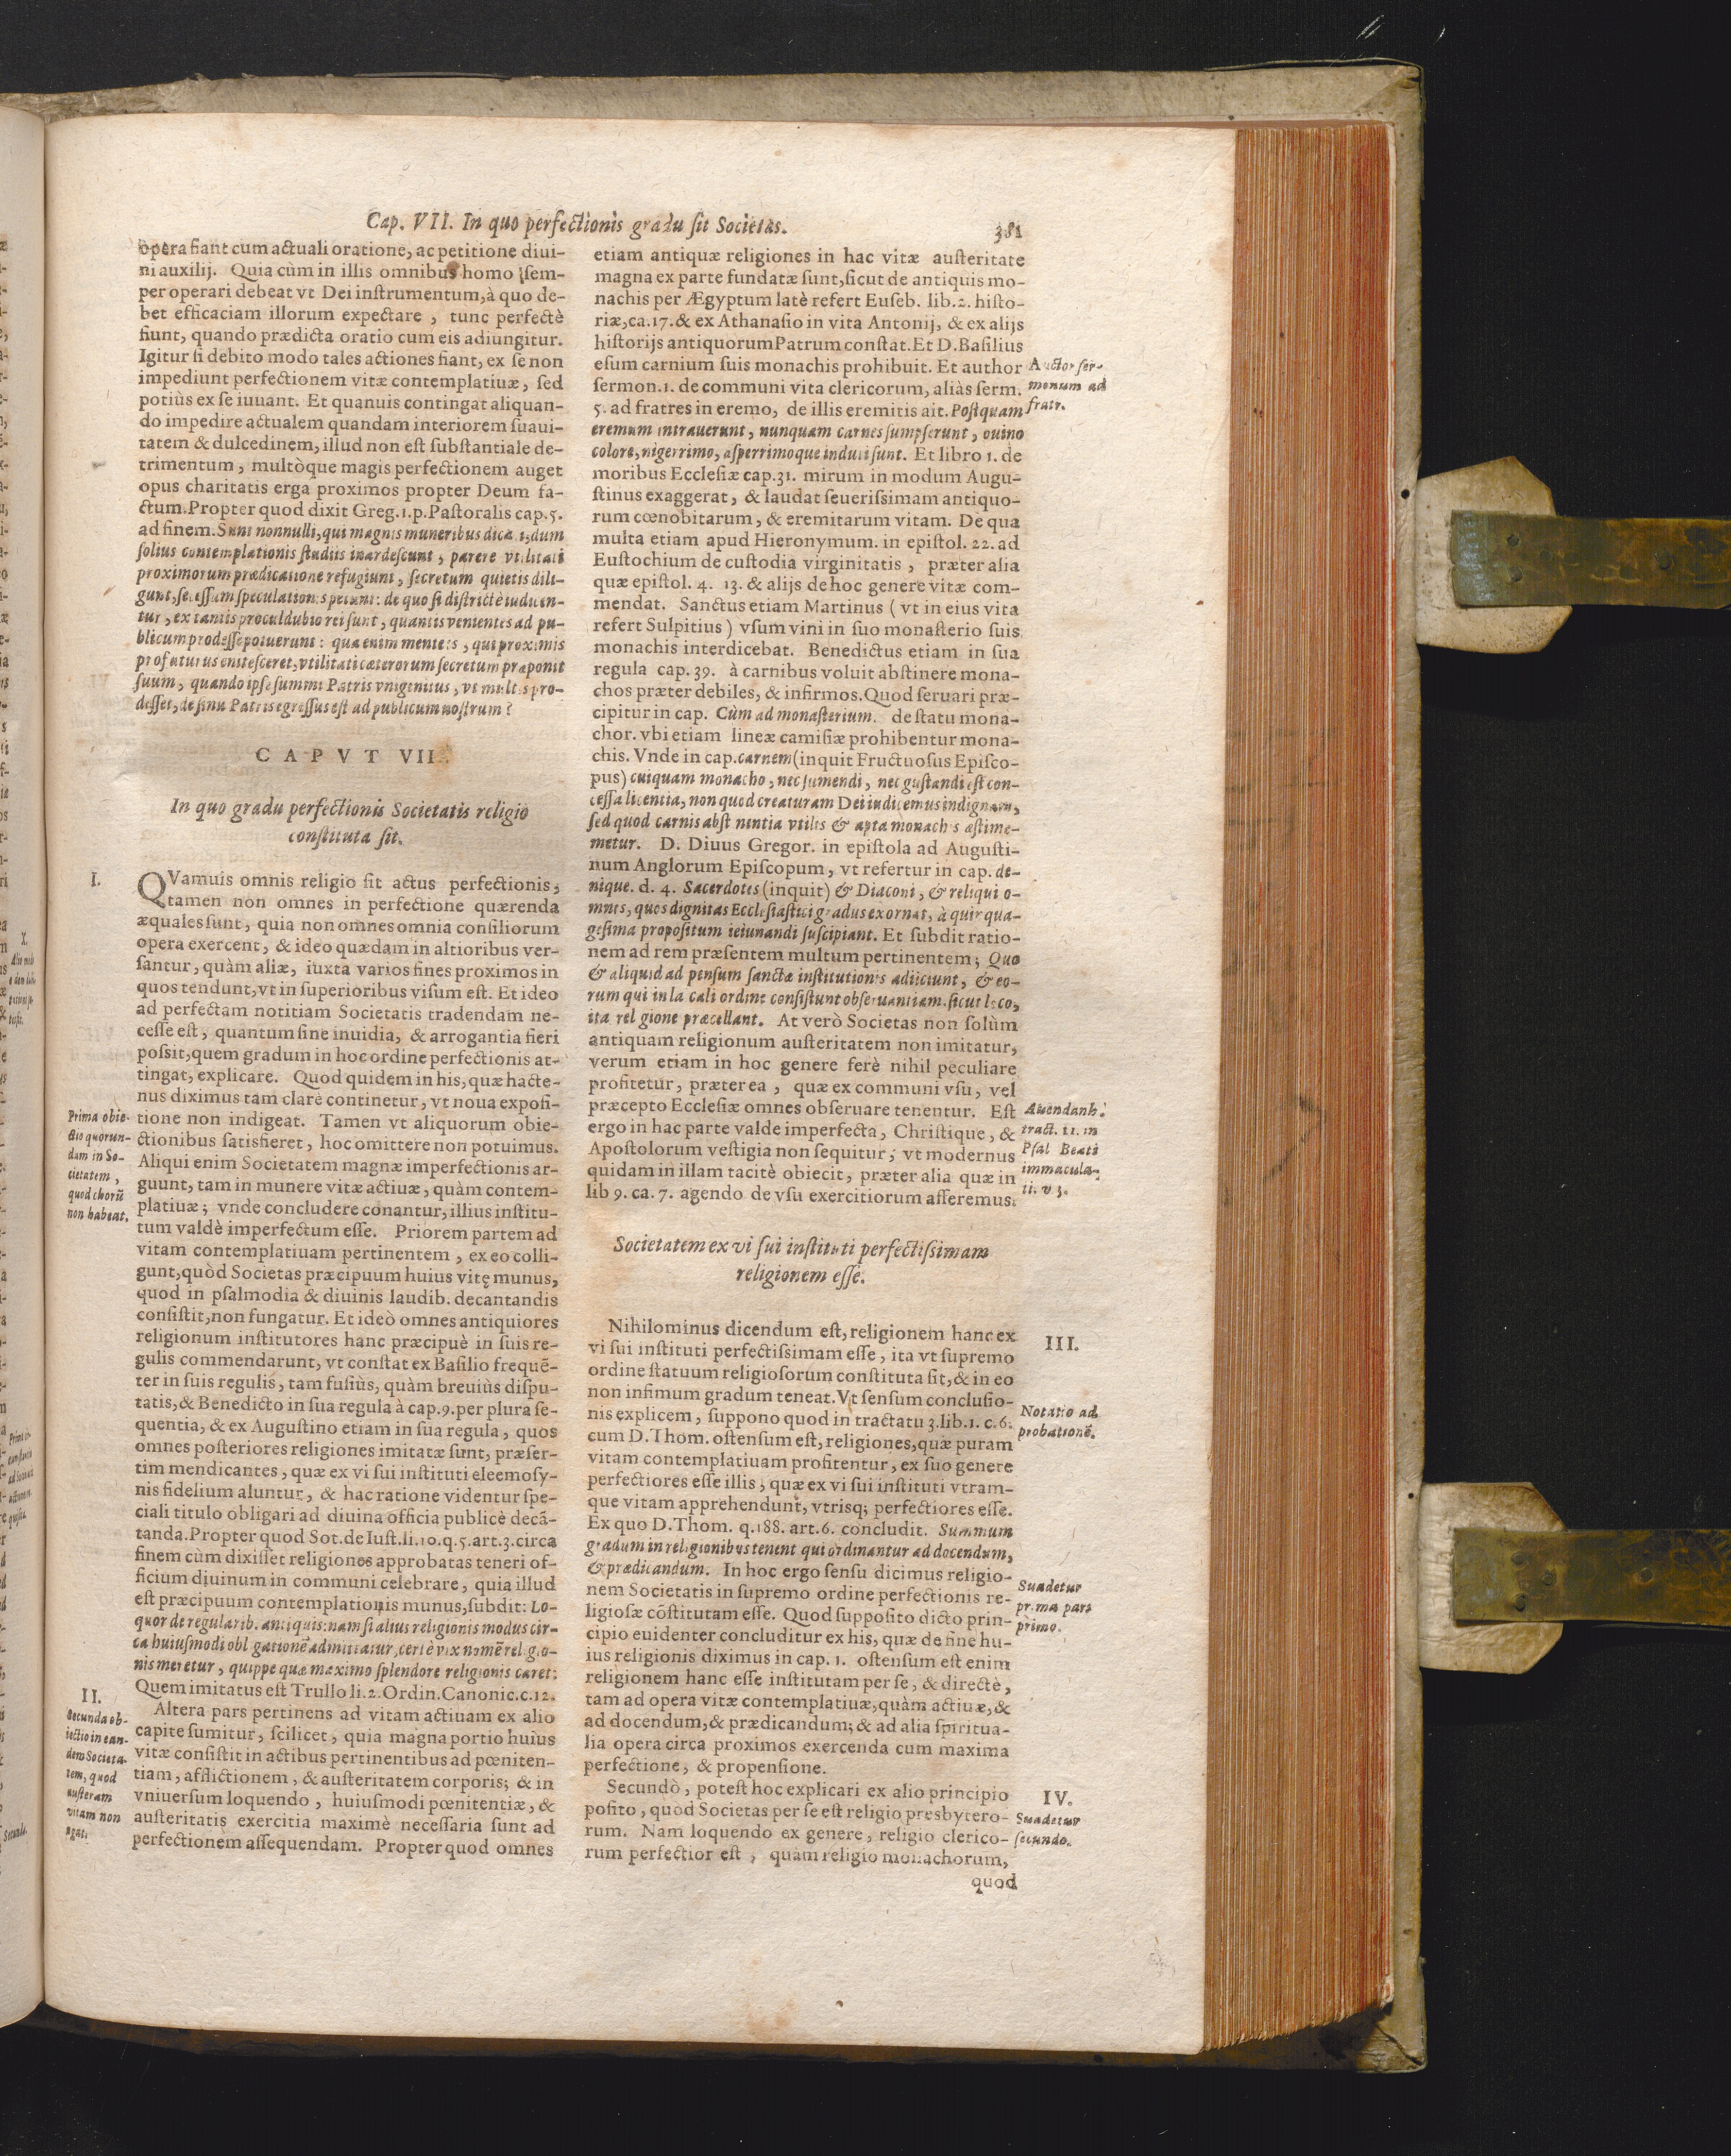 Cap. VII. In quo perfectionis gradu ſit Societas.
381
opera fiant cum actuali oratione, ac petitione diui-
ni auxilij. Quia cùm in illis omnibus homo ſem-
per operari debeat vt Dei inſtrumentum, à quo de-
bet efficaciam illorum expectare, tunc perfectè
fiunt, quando prædicta oratio cum eis adiungitur.
Igitur ſi debito modo tales actiones fiant, ex ſe non
impediunt perfectionem vitæ contemplatiuæ, ſed
potiùs ex ſe iuuant. Et quanuis contingat aliquan-
do impedire actualem quandam interiorem ſuaui-
tatem & dulcedinem, illud non eſt ſubſtantiale de-
trimentum, multòque magis perfectionem auget
opus charitatis erga proximos propter Deum fa-
ctum. Propter quod dixit Greg. 1. p. Paſtoralis cap. 5.
ad finem. Sunt nonnulli, qui magnis muneribus dicati, dum
ſolius contemplationis ſtudiis inardeſcunt, parere vtilitati
proximorum prædicatione refugiunt, ſecretum quietis dili-
gunt, ſeceſſum ſpeculationis petunt: de quo ſi diſtrictè iudicen-
tur, ex tantis proculdubio rei ſunt, quantis venientes ad pu-
blicum prodeſſe potuerunt: qua enim mente is, qui proximis
profuturus eniteſceret, vtilitati cæterorum ſecretum præponit
ſuum, quando ipſe ſummi Patris vnigenitus, vt multis pro-
deſſet, de ſinu Patris egreſſus eſt ad publicum noſtrum?
CAPVT VII.
In quo gradu perfectionis Societatis religio
conſtituta ſit.
I.
QVamuis omnis religio ſit actus perfectionis,
tamen non omnes in perfectione quærenda
æquales ſunt, quia non omnes omnia conſiliorum
opera exercent, & ideo quædam in altioribus ver-
ſantur, quàm aliæ, iuxta varios fines proximos in
quos tendunt, vt in ſuperioribus viſum eſt. Et ideo
ad perfectam notitiam Societatis tradendam ne-
ceſſe eſt, quantum ſine inuidia, & arrogantia fieri
poſsit, quem gradum in hoc ordine perfectionis at-
tingat, explicare. Quod quidem in his, quæ hacte-
nus diximus tam clarè continetur, vt noua expoſi-
tione non indigeat. Tamen vt aliquorum obie-
ctionibus ſatisfieret, hoc omittere non potuimus.
Aliqui enim Societatem magnæ imperfectionis ar-
guunt, tam in munere vitæ actiuæ, quàm contem-
platiuæ; vnde concludere conantur, illius inſtitu-
tum valdè imperfectum eſſe. Priorem partem ad
vitam contemplatiuam pertinentem, ex eo colli-
gunt, quòd Societas præcipuum huius vitę munus,
quod in pſalmodia & diuinis laudib. decantandis
conſiſtit, non fungatur. Et ideò omnes antiquiores
religionum inſtitutores hanc præcipuè in ſuis re-
gulis commendarunt, vt conſtat ex Baſilio frequē-
ter in ſuis regulis, tam fuſiùs, quàm breuiùs diſpu-
tatis, & Benedicto in ſua regula à cap. 9. per plura ſe-
quentia, & ex Auguſtino etiam in ſua regula, quos
omnes poſteriores religiones imitatæ ſunt, præſer-
tim mendicantes, quæ ex vi ſui inſtituti eleemoſy-
nis fidelium aluntur, & hac ratione videntur ſpe-
ciali titulo obligari ad diuina officia publicè decā-
tanda. Propter quod Sot. de Iuſt. li. 10. q. 5. art. 3. circa
finem cùm dixiſſet religiones approbatas teneri of-
ficium diuinum in communi celebrare, quia illud
eſt præcipuum contemplationis munus, ſubdit: Lo-
quor de regularib. antiquis: nam ſi alius religionis modus cir-
ca huiuſmodi obligationē admittatur, certè vix nomē religio-
nis meretur, quippe quæ maximo ſplendore religionis caret:
Quem imitatus eſt Trullo li. 2. Ordin. Canonic. c. 12.
Altera pars pertinens ad vitam actiuam ex alio
capite ſumitur, ſcilicet, quia magna portio huius
vitæ conſiſtit in actibus pertinentibus ad pœniten-
tiam, afflictionem, & auſteritatem corporis; & in
vniuerſum loquendo, huiuſmodi pœnitentiæ, &
auſteritatis exercitia maximè neceſſaria ſunt ad
perfectionem aſſequendam. Propter quod omnes
Prima obie-
ctio quorun-
dam in So-
cietatem,
quod chorū
non habeat.
II.
Secunda ob-
iectio in ean-
dem Societa-
tem, quod
auſteram
vitam non
agat.
etiam antiquæ religiones in hac vitæ auſteritate
magna ex parte fundatæ ſunt, ſicut de antiquis mo-
nachis per Ægyptum latè refert Euſeb. lib. 2. hiſto-
riæ, ca. 17. & ex Athanaſio in vita Antonij, & ex alijs
hiſtorijs antiquorum Patrum conſtat. Et D. Baſilius
eſum carnium ſuis monachis prohibuit. Et author
ſermon. 1. de communi vita clericorum, aliàs ſerm.
5. ad fratres in eremo, de illis eremitis ait. Poſtquam
eremum intrauerunt, nunquam carnes ſumpſerunt, ouino
colore, nigerrimo, aſperrimoque induti ſunt. Et libro 1. de
moribus Eccleſiæ cap. 31. mirum in modum Augu-
ſtinus exaggerat, & laudat ſeueriſsimam antiquo-
rum cœnobitarum, & eremitarum vitam. De qua
multa etiam apud Hieronymum. in epiſtol. 22. ad
Euſtochium de cuſtodia virginitatis, præter alia
quæ epiſtol. 4. 13. & alijs de hoc genere vitæ com-
mendat. Sanctus etiam Martinus (vt in eius vita
refert Sulpitius) vſum vini in ſuo monaſterio ſuis
monachis interdicebat. Benedictus etiam in ſua
regula cap. 39. à carnibus voluit abſtinere mona-
chos præter debiles, & infirmos. Quod ſeruari præ-
cipitur in cap. Cùm ad monaſterium. de ſtatu mona-
chor. vbi etiam lineæ camiſiæ prohibentur mona-
chis. Vnde in cap. carnem (inquit Fructuoſus Epiſco-
pus) cuiquam monacho, nec ſumendi, nec guſtandi eſt con-
ceſſa licentia, non quod creaturam Dei iudicemus indignam,
ſed quod carnis abſtinentia vtilis & apta monachis æſtime-
metur. D. Diuus Gregor. in epiſtola ad Auguſti-
num Anglorum Epiſcopum, vt refertur in cap. de-
nique. d. 4. Sacerdotes (inquit) & Diaconi, & reliqui o-
mnes, quos dignitas Eccleſiaſtici gradus exornat, à quinqua-
geſima propoſitum ieiunandi ſuſcipiant. Et ſubdit ratio-
nem ad rem præſentem multum pertinentem; Quo
& aliquid ad penſum ſanctæ inſtitutionis adiiciunt, & eo-
rum qui in laicali ordine conſiſtunt obſeruantiam. ſicut loco,
ita religione præcellant. At verò Societas non ſolùm
antiquam religionum auſteritatem non imitatur,
verum etiam in hoc genere ferè nihil peculiare
profitetur, præter ea, quæ ex communi vſu, vel
præcepto Eccleſiæ omnes obſeruare tenentur. Eſt
ergo in hac parte valde imperfecta, Chriſtique, &
Apoſtolorum veſtigia non ſequitur, vt modernus
quidam in illam tacitè obiecit, præter alia quæ in
lib 9. ca. 7. agendo de vſu exercitiorum afferemus.
Auctor ſer-
monum ad
fratr.
Auendanh.
tract. 11. in
Pſal Beati
immacula-
ti. v 3.
Societatem ex vi ſui inſtituti perfectiſsimam
religionem eſſe.
Nihilominus dicendum eſt, religionem hanc ex
vi ſui inſtituti perfectiſsimam eſſe, ita vt ſupremo
ordine ſtatuum religioſorum conſtituta ſit, & in eo
non infimum gradum teneat. Vt ſenſum concluſio-
nis explicem, ſuppono quod in tractatu 3. lib. 1. c. 6.
cum D. Thom. oſtenſum eſt, religiones, quæ puram
vitam contemplatiuam profitentur, ex ſuo genere
perfectiores eſſe illis, quæ ex vi ſui inſtituti vtram-
que vitam apprehendunt, vtrisq; perfectiores eſſe.
Ex quo D. Thom. q. 188. art. 6. concludit. Summum
gradum in religionibus tenent qui ordinantur ad docendum,
& prædicandum. In hoc ergo ſenſu dicimus religio-
nem Societatis in ſupremo ordine perfectionis re-
ligioſæ cōſtitutam eſſe. Quod ſuppoſito dicto prin-
cipio euidenter concluditur ex his, quæ de fine hu-
ius religionis diximus in cap. 1. oſtenſum eſt enim
religionem hanc eſſe inſtitutam per ſe, & directè,
tam ad opera vitæ contemplatiuæ, quàm actiuæ, &
ad docendum, & prædicandum; & ad alia ſpiritua-
lia opera circa proximos exercenda cum maxima
perfectione, & propenſione.
Secundò, poteſt hoc explicari ex alio principio
poſito, quòd Societas per ſe eſt religio presbytero-
rum. Nam loquendo ex genere, religio clerico-
rum perfectior eſt, quàm religio monachorum,
quod
III.
Notatio ad
probationē.
Suadetur
prima pars
primo.
IV.
Suadetur
ſecundo.